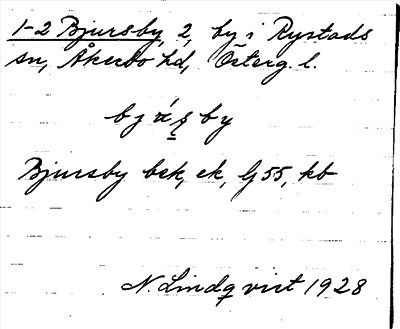 1-2 Bjursby, 2, by i Rystads
sn, Åkerbo hd, Österg. l.
Bjursby bsk, ek, G55, kb
N. Lindqvist 1928